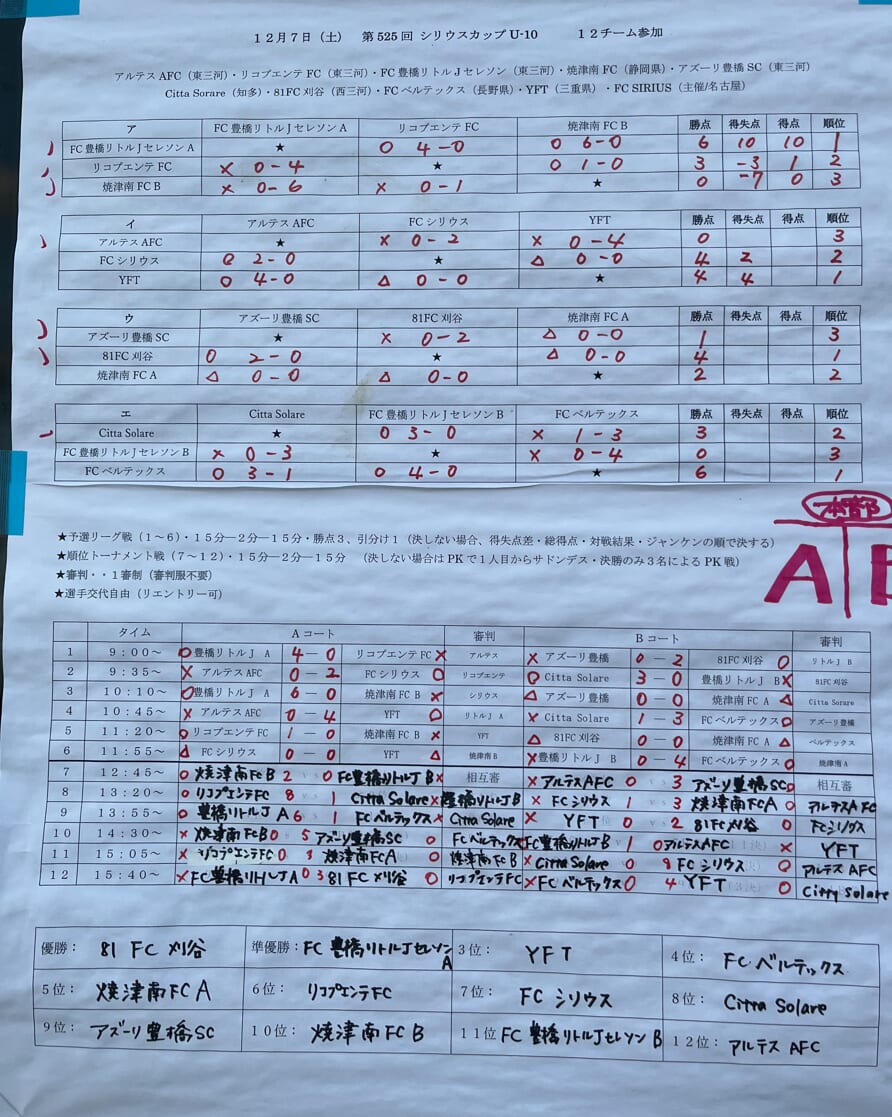 12月7日（土）　第525回 シリウスカップ U-10　　12チーム参加
アルテス AFC（東三河）・リコプエンテ FC（東三河）・FC 豊橋リトル J セレソン（東三河）・焼津南 FC（静岡県）・アズーリ豊橋 SC（東三河）
Citta Sorare（知多）・81FC 刈谷（西三河）・FC ベルテックス（長野県）・YFT（三重県）・FC SIRIUS（主催/名古屋）
ア FC 豊橋リトル J セレソン A リコプエンテ FC 焼津南 FC B 勝点 得失点 得点 順位
FC 豊橋リトル J セレソン A ★ ○ 4-0 ○ 6-0 6 10 10 1
リコプエンテ FC × 0-4 ★ ○ 1-0 3 -3 1 2
焼津南 FC B × 0-6 × 0-1 ★ 0 -7 0 3
イ アルテス AFC FC シリウス YFT 勝点 得失点 得点 順位
アルテス AFC ★ × 0-2 × 0-4 0 3
FC シリウス ○ 2-0 ★ △ 0-0 4 2 2
YFT ○ 4-0 △ 0-0 ★ 4 4 1
ウ アズーリ豊橋 SC 81FC 刈谷 焼津南 FC A 勝点 得失点 得点 順位
アズーリ豊橋 SC ★ × 0-2 △ 0-0 1 3
81FC 刈谷 ○ 2-0 ★ △ 0-0 4 1
焼津南 FC A △ 0-0 △ 0-0 ★ 2 2
エ Citta Solare FC 豊橋リトル J セレソン B FC ベルテックス 勝点 得失点 得点 順位
Citta Solare ★ ○ 3-0 × 1-3 3 2
FC 豊橋リトル J セレソン B × 0-3 ★ × 0-4 0 3
FC ベルテックス ○ 3-1 ○ 4-0 ★ 6 1
本部
A B
★予選リーグ戦（1～6）・15分―2分―15分・勝点3、引分け1（決しない場合、得失点差・総得点・対戦結果・ジャンケンの順で決する）
★順位トーナメント戦（7～12）・15分―2分―15分　（決しない場合は PK で1人目からサドンデス・決勝のみ3名による PK 戦）
★審判・・1審制（審判服不要）
★選手交代自由（リエントリー可）
タイム Aコート 審判 Bコート 審判
1 9：00～ ○ 豊橋リトル J A 4-0 リコプエンテ FC × アルテス × アズーリ豊橋 0-2 81FC 刈谷 ○ リトル J B
2 9：35～ × アルテス AFC 0-2 FC シリウス ○ リコプエンテ ○ Citta Solare 3-0 豊橋リトル J B × 81FC 刈谷
3 10：10～ ○ 豊橋リトル J A 6-0 焼津南 FC B × シリウス △ アズーリ豊橋 0-0 焼津南 FC A △ Citta Sorare
4 10：45～ × アルテス AFC 0-4 YFT ○ リトル J A × Citta Solare 1-3 FC ベルテックス ○ アズーリ豊橋
5 11：20～ ○ リコプエンテ FC 1-0 焼津南 FC B × YFT △ 81FC 刈谷 0-0 焼津南 FC A △ ベルテックス
6 11：55～ △ FC シリウス 0-0 YFT △ 焼津南 B × 豊橋リトル J B 0-4 FC ベルテックス ○ 焼津南 A
7 12：45～ ○ 焼津南FC B 2 0 FC豊橋リトルJ B × 相互審 × アルテス AFC 0 3 アズーリ豊橋SC ○ 相互審
8 13：20～ ○ リコプエンテFC 8 1 Citta Solare × 豊橋リトルJ B × FC シリウス 1 3 焼津南FC A ○ アルテス A FC
9 13：55～ ○ 豊橋リトルJ A 6 1 FC ベルテックス × Citta Solare × YFT 0 2 81 FC 刈谷 ○ FCシリウス
10 14：30～ × 焼津南FC B 0 5 アズーリ豊橋SC ○ FC ベルテックス FC豊橋リトルJ B 1 0 アルテス AFC × YFT
11 15：05～ × リコプエンテFC 0 焼津南FCA ○ 焼津南FC B × Citta Solare 0 FC シリウス ○ アルテス AFC
12 15：40～ × FC豊橋リトルJ A 0 3 81 FC 刈谷 ○ リコプエンテFC × FC ベルテックス 0 4 YFT ○ Citty Solare
優勝： 81 FC 刈谷 準優勝： FC 豊橋リトルJセレソン A 3位： YFT 4位： FC ベルテックス
5位： 焼津南FC A 6位： リコプエンテFC 7位： FC シリウス 8位： Citta Solare
9位： アズーリ豊橋SC 10位： 焼津南FC B 11位 FC 豊橋リトルJセレソン B 12位： アルテス AFC